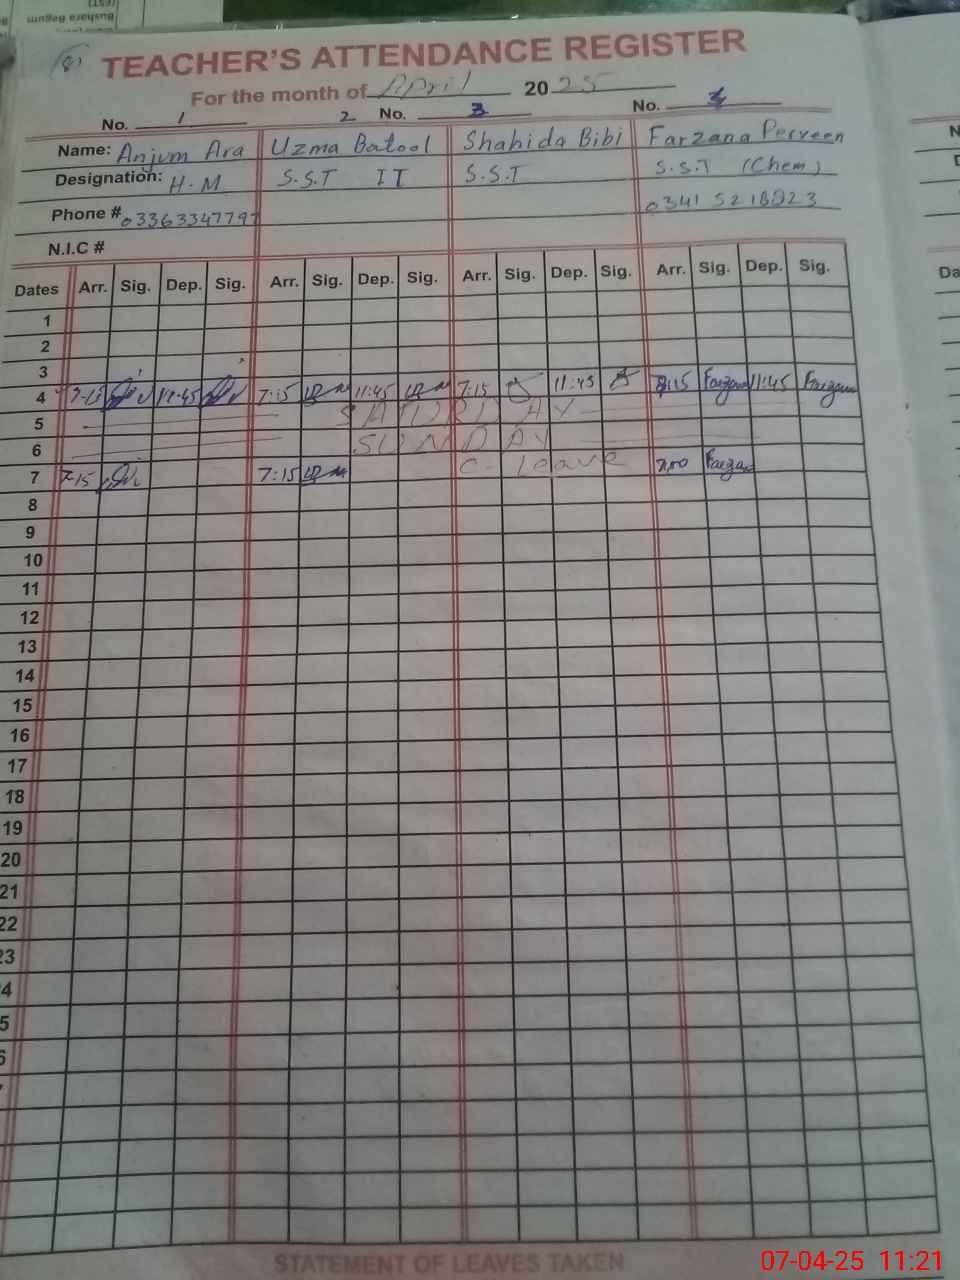 (EST)
Bushara Begum
TEACHER'S ATTENDANCE REGISTER
For the month of April 2025
No. 1 2 No. 3 No. 4
Name: Anjum Ara Uzma Batool Shahida Bibi Farzana Perveen
Designation: H.M S.S.T IT S.S.T S.S.T (Chem)
Phone # 03363347797 0341 5218223
N.I.C #
Dates Arr. Sig. Dep. Sig. Arr. Sig. Dep. Sig. Arr. Sig. Dep. Sig. Arr. Sig. Dep. Sig.
1
2
3
4 7-15 11-45 7:15 11:45 7:15 11:45 8:15 Farzana 11:45 Farzana
5 SATURDAY
6 SUNDAY
7 7-15 7:15 C- Leave 7:00 Farzana
8
9
10
11
12
13
14
15
16
17
18
19
20
21
22
23
4
5
6
STATEMENT OF LEAVES TAKEN
07-04-25 11:21